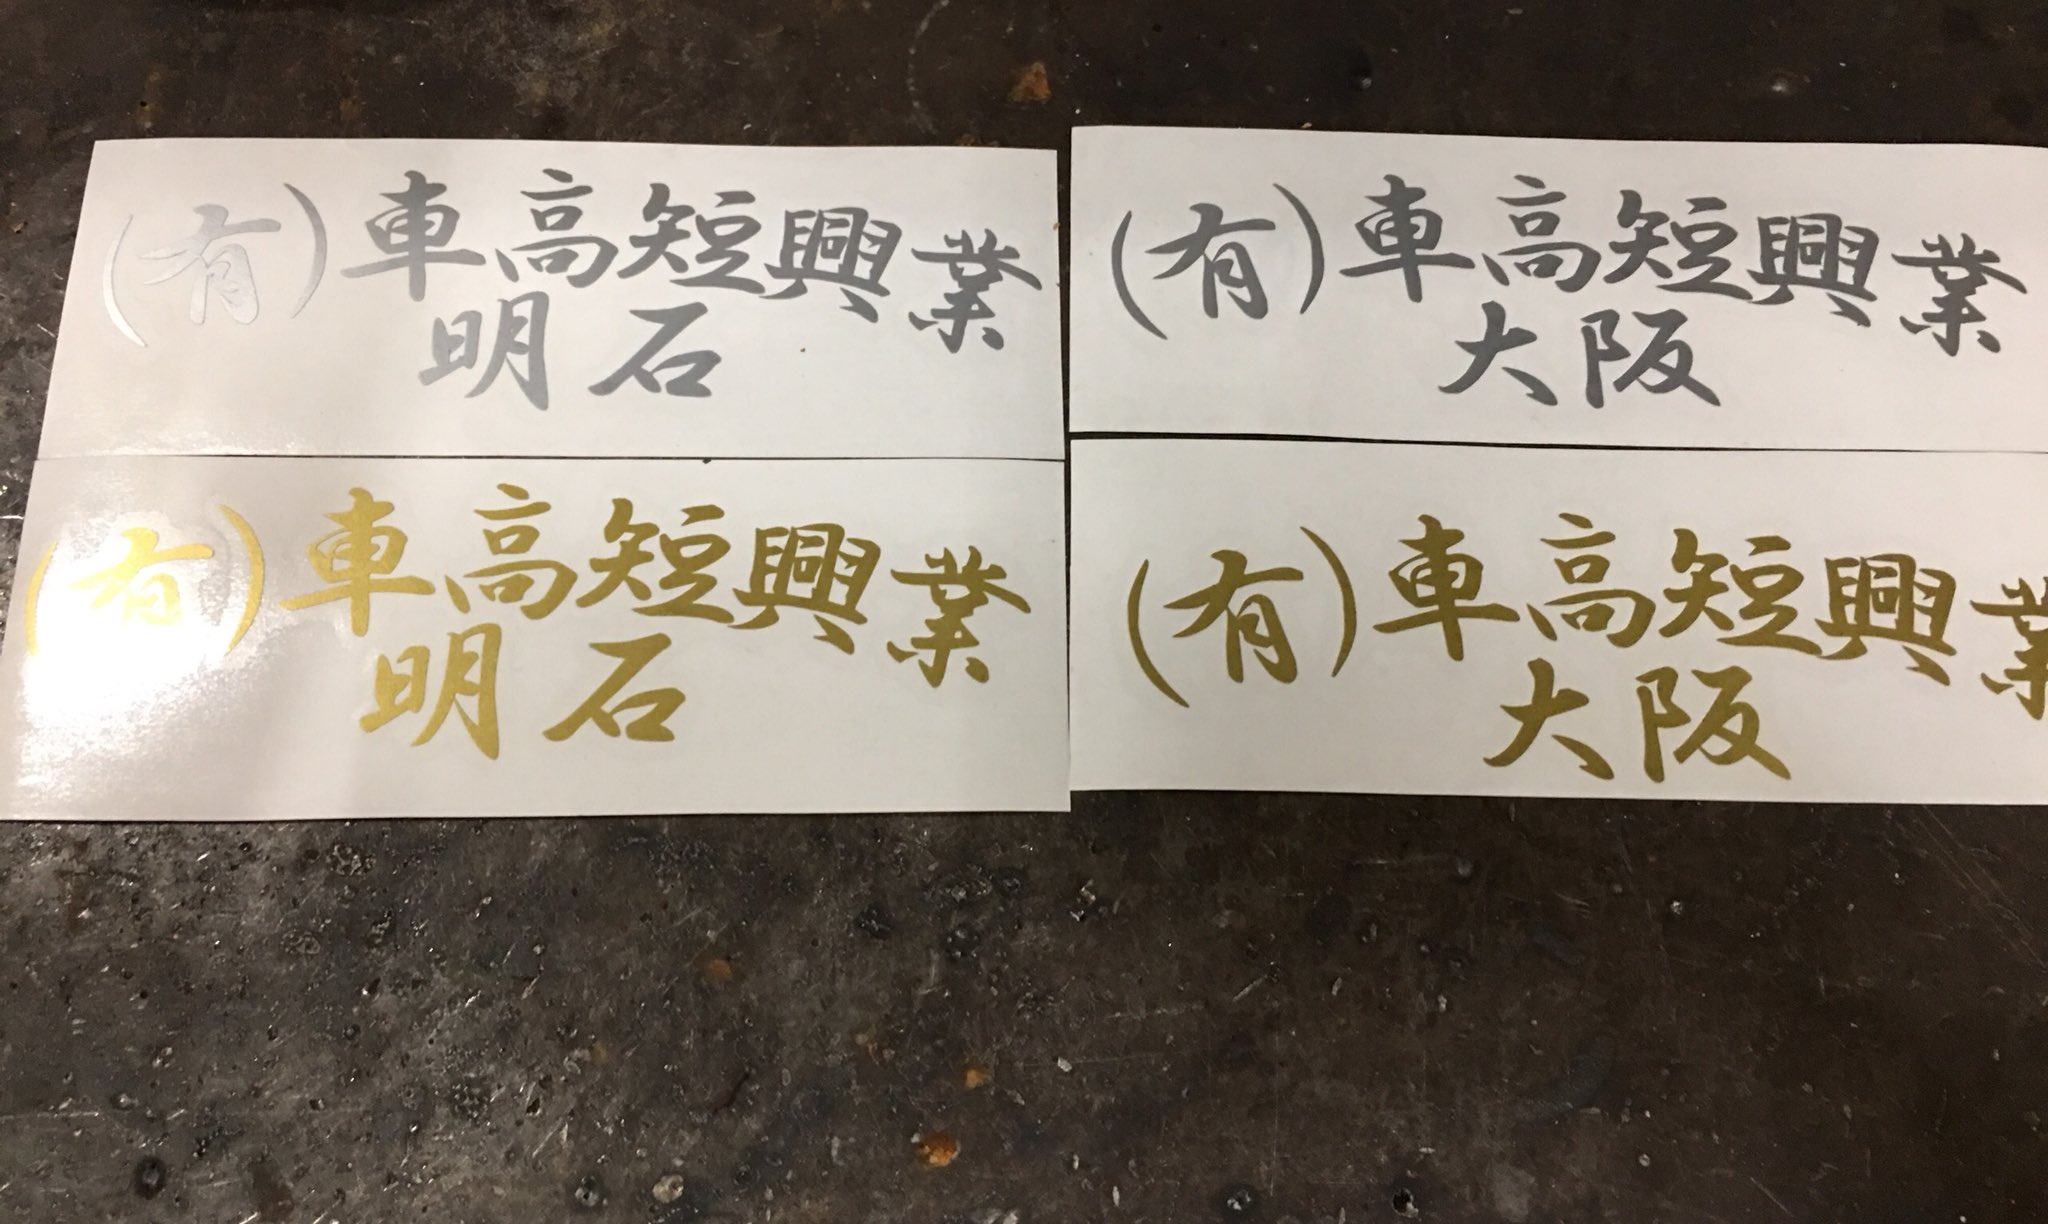 (有)車高短興業
明石
(有)車高短興業
大阪
(有)車高短興業
明石
(有)車高短興業
大阪